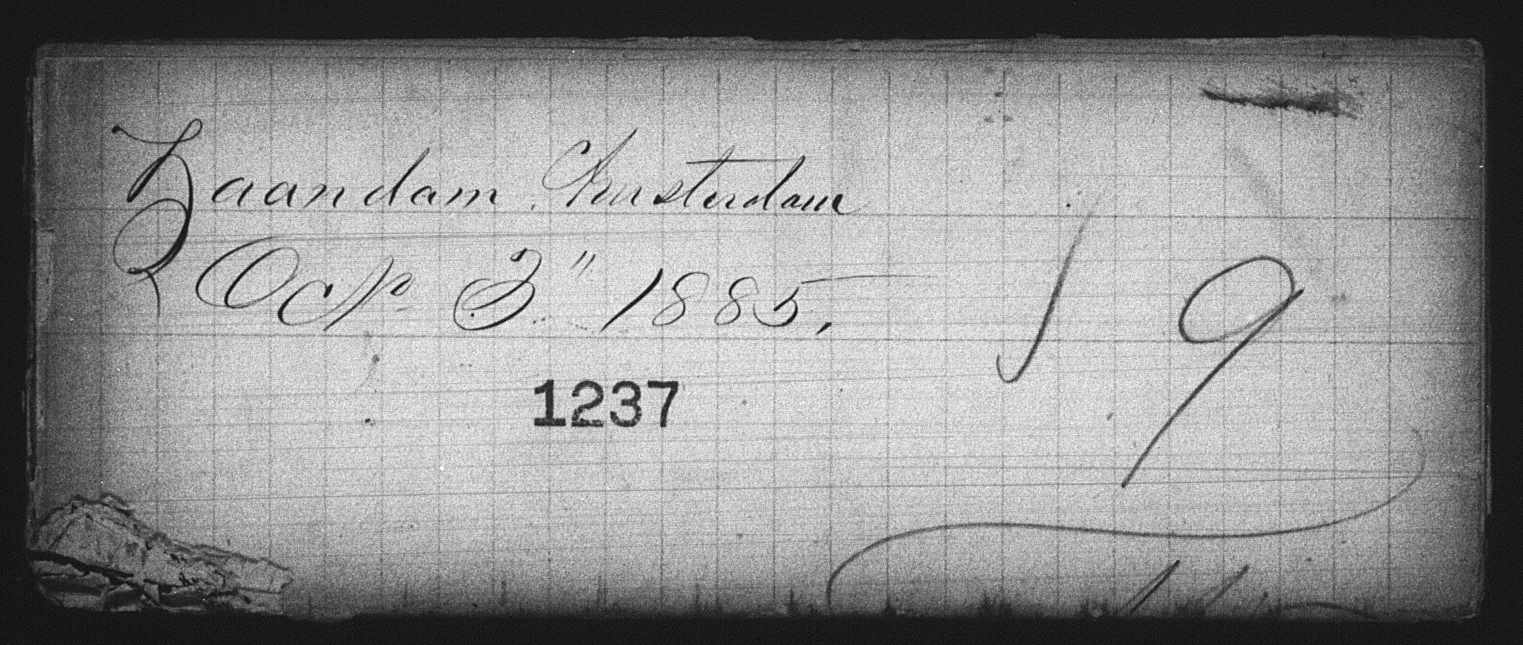 Zaandam Amsterdam
Oct 3" 1885.
1237
19